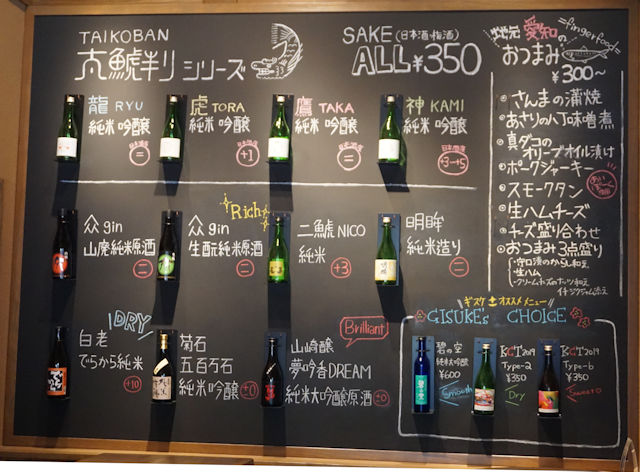 TAIKOBAN
シリーズ
SAKE(日本酒・梅酒)
ALL ¥350
龍 RYU
純米 吟醸
日本酒度
虎 TORA
純米 吟醸
日本酒度
+1
鷹 TAKA
純米 吟醸
日本酒度
神 KAMI
純米 吟醸
日本酒度
+3~+5
众 gin
山廃純米原酒
Rich
众 gin
生酛純米原酒
二虎 NICO
純米
+3
明眸
純米造り
DRY
白老
でらから純米
+10
菊石
五百万石
純米吟醸
±0
Brilliant
山﨑醸
夢吟香DREAM
純米大吟醸原酒
±0
地元 愛知の
=fingerfood=
おつまみ
¥300~
さんまの蒲焼
あさりの八丁味噌煮
真ダコの
オリーブオイル漬け
ポークジャーキー
スモークタン
生ハムチーズ
チーズ盛り合わせ
おつまみ3点盛り
・守口漬のからし和え
・生ハム
・クリームチーズのナッツ和え
イチジクジャム添え
ギスケ オススメメニュー
GISUKE's CHOICE
碧の空
純米大吟醸
¥600
Smooth
KCT2019
Type-2
¥350
Dry
KCT2019
Type-6
¥350
Sweet